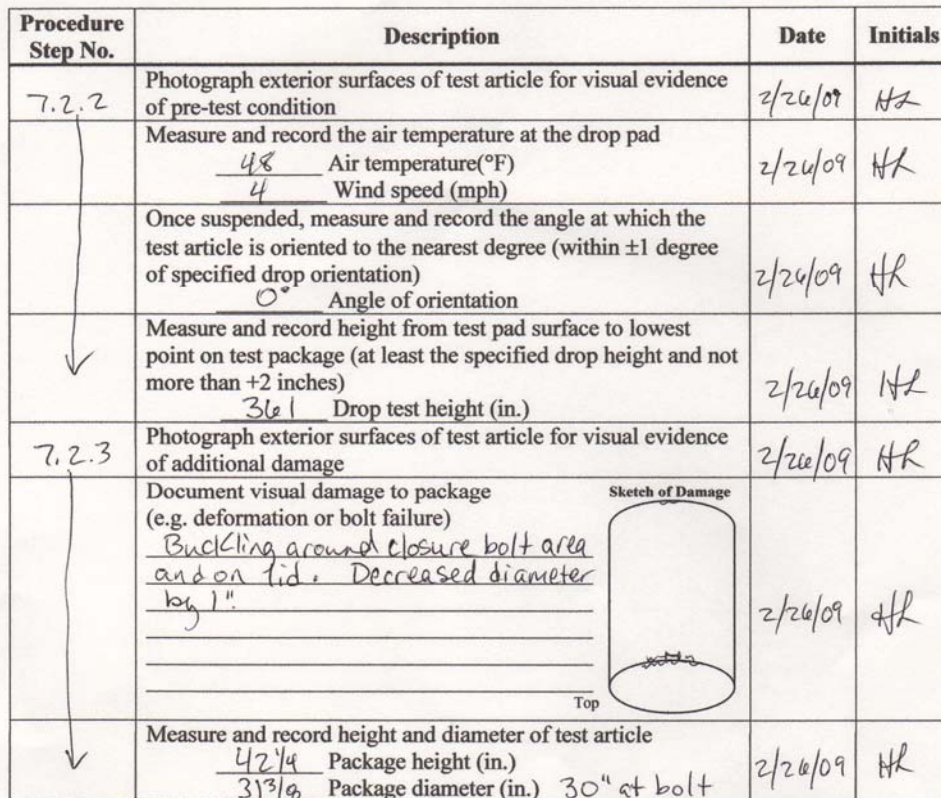 Procedure Step No. Description Date Initials
7.2.2
Photograph exterior surfaces of test article for visual evidence
of pre-test condition
2/26/09 HL
Measure and record the air temperature at the drop pad
48 Air temperature(°F)
4 Wind speed (mph)
2/26/09 HL
Once suspended, measure and record the angle at which the
test article is oriented to the nearest degree (within ±1 degree
of specified drop orientation)
0° Angle of orientation
2/26/09 HL
Measure and record height from test pad surface to lowest
point on test package (at least the specified drop height and not
more than +2 inches)
361 Drop test height (in.)
2/26/09 HL
7.2.3
Photograph exterior surfaces of test article for visual evidence
of additional damage
2/26/09 HL
Document visual damage to package
(e.g. deformation or bolt failure)
Sketch of Damage
Buckling around closure bolt area
and on lid. Decreased diameter
by 1".
Top
2/26/09 HL
Measure and record height and diameter of test article
42 1/4 Package height (in.)
31 3/8 Package diameter (in.) 30" at bolt
2/26/09 HL